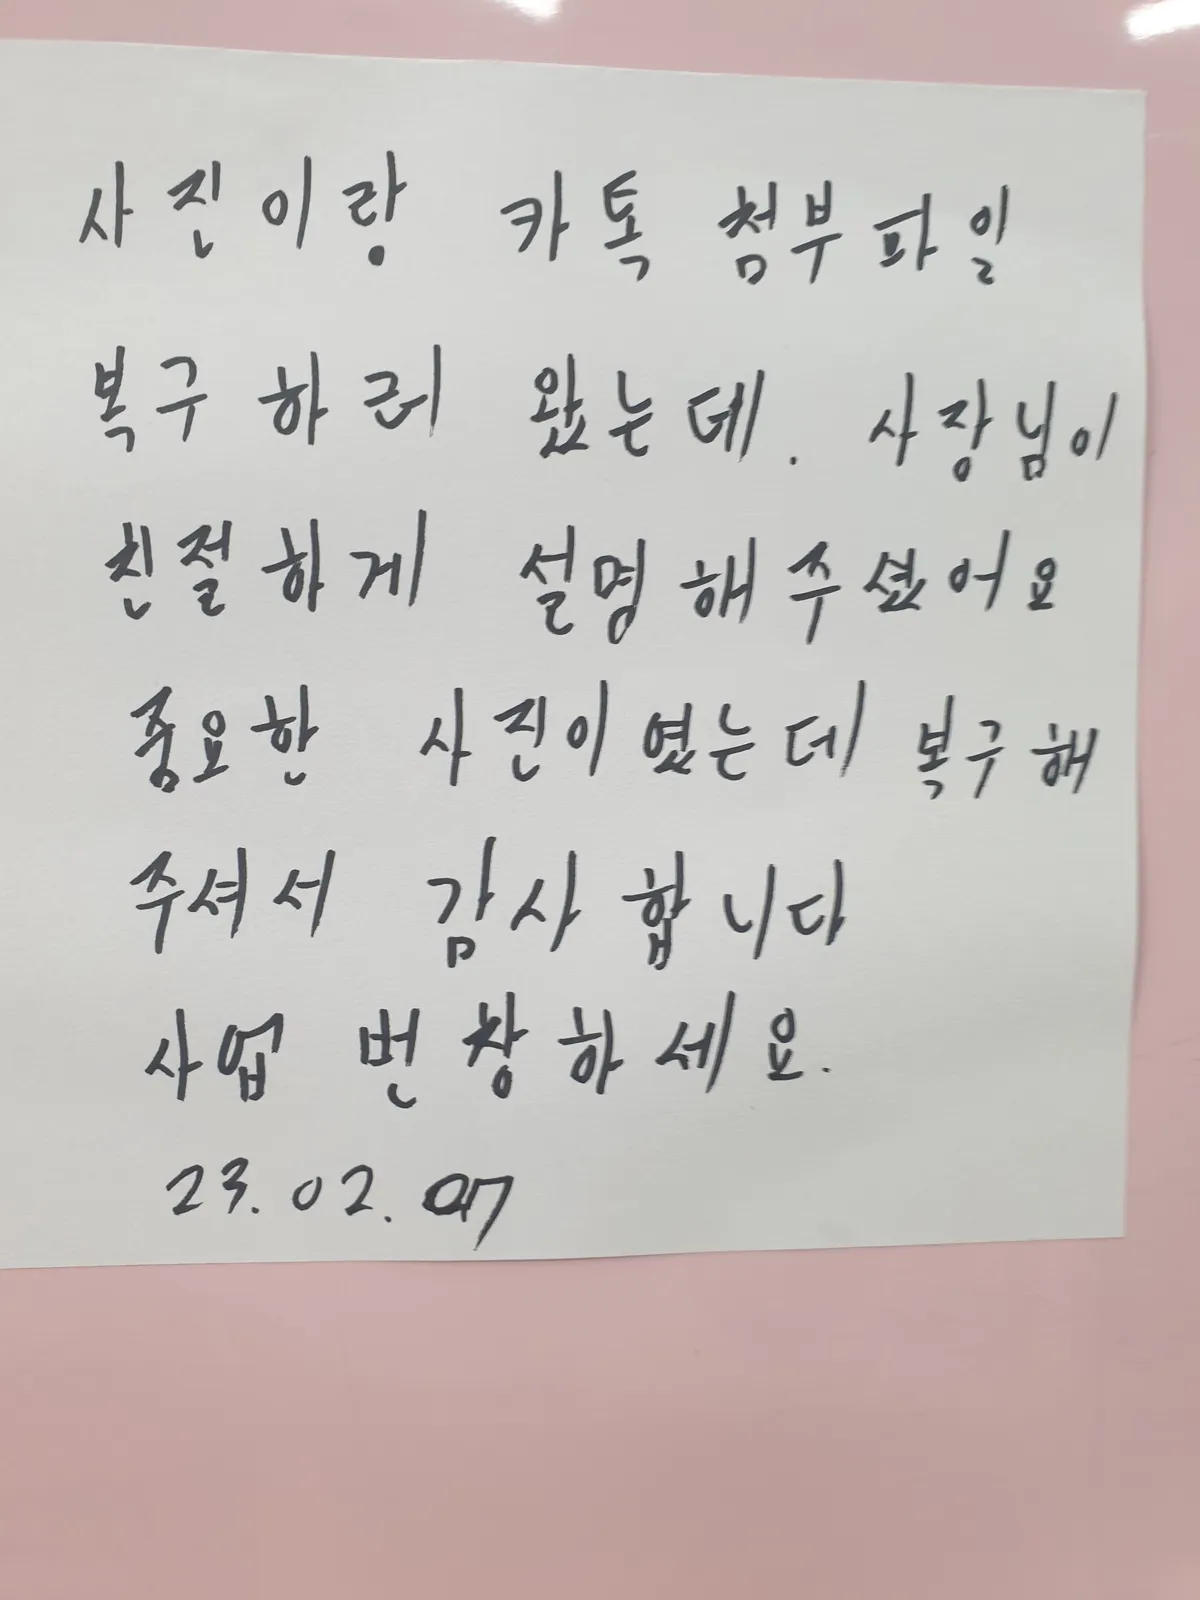 사진이랑 카톡 첨부파일
복구하러 왔는데. 사장님이
친절하게 설명해주셨어요
중요한 사진이였는데 복구해
주셔서 감사합니다
사업 번창하세요.
23.02.07